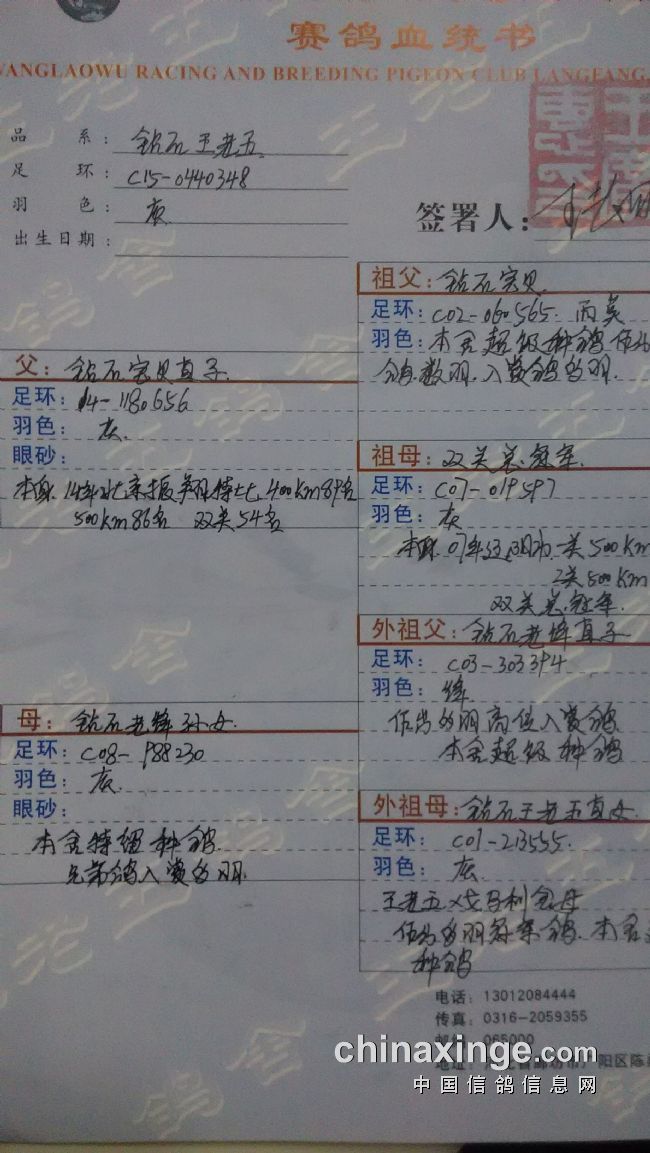 赛鸽血统书
WANGLAOWU RACING AND BREEDING PIGEON CLUB LANGFANG
品系：钻石王老五
足环：C15-0440348
羽色：灰
出生日期：
签署人：
父：钻石宝贝直子
足环：14-1180656
羽色：灰
眼砂：
400km89名
500km86名 双关54名
母：钻石老绛孙女
足环：C08-188230
羽色：灰
眼砂：
本舍特级种鸽
兄弟鸽入赏多羽
祖父：钻石宝贝
足环：C02-060565
羽色：本舍超级种鸽
鸽数羽.入赏鸽多羽.
祖母：双关总冠军
足环：C07-019597
羽色：灰
一关500km
2关500km
双关总冠军.
外祖父：钻石老绛直子
足环：C03-303394
羽色：绛
作出多羽高位入赏鸽
本舍超级种鸽
外祖母：钻石王老五直女
足环：C01-213555.
羽色：灰
王老五X戈马利金母
作出多羽冠军鸽.本舍
种鸽
电话：13012084444
传真：0316-2059355
邮编：065000
地址：河北省廊坊市广阳区陈
chinaxinge.com
中国信鸽信息网